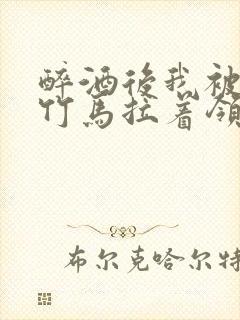 醉酒后我被
竹马拉着领
布尔克哈尔特